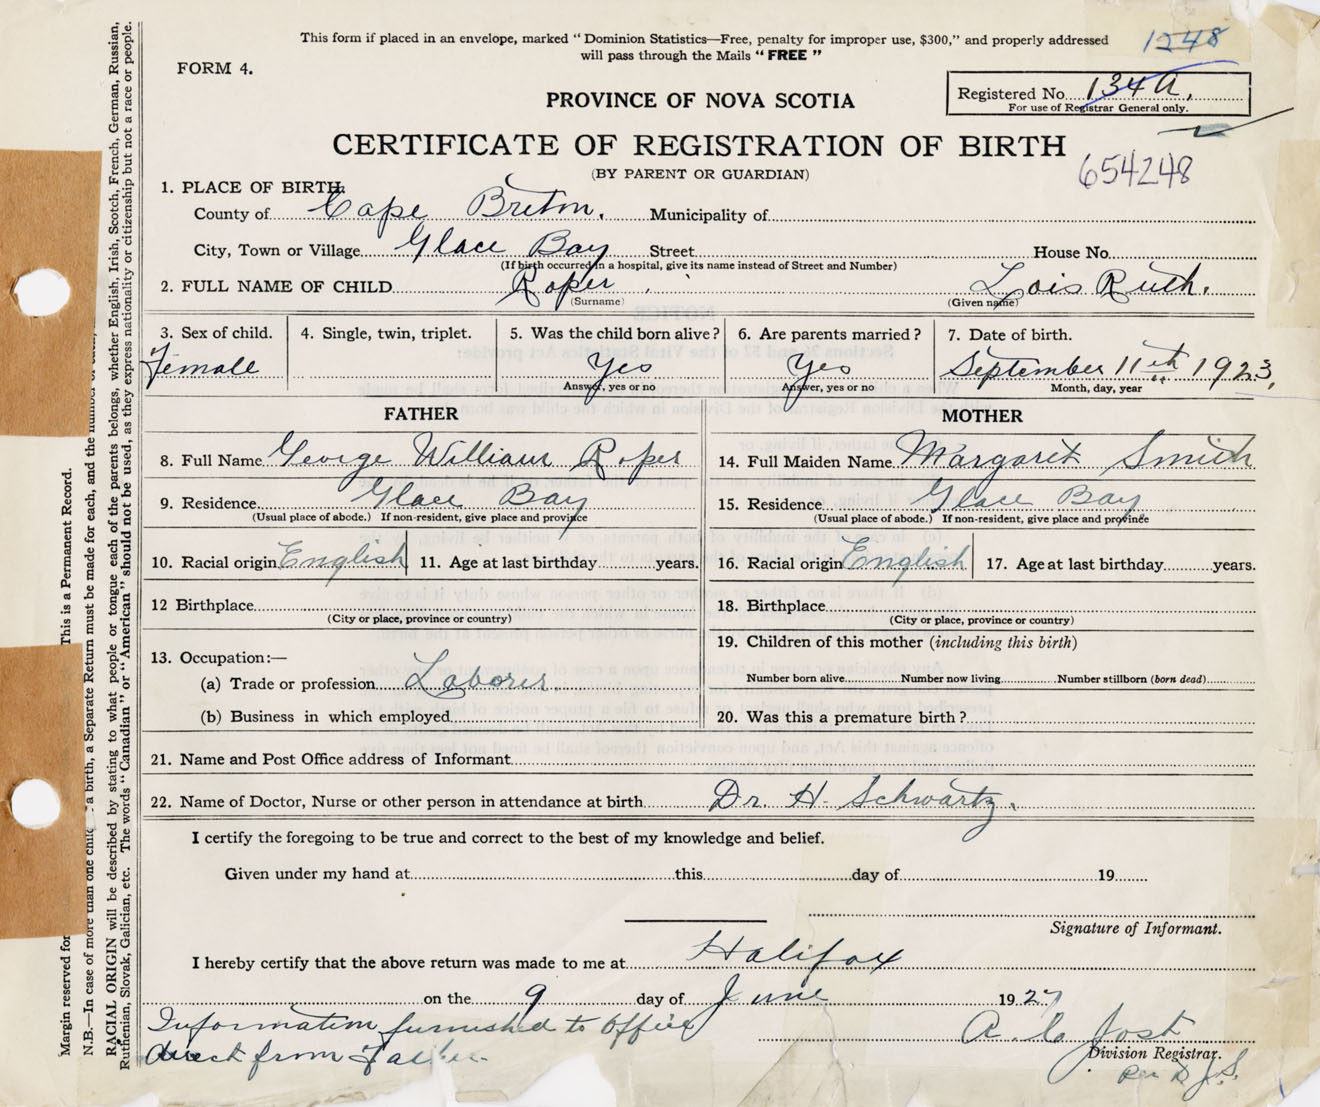 This form if placed in an envelope, marked " Dominion Statistics—Free, penalty for improper use, $300," and properly addressed
will pass through the Mails " FREE "
1248
FORM 4.
Registered No. 134a.
For use of Registrar General only.
PROVINCE OF NOVA SCOTIA
CERTIFICATE OF REGISTRATION OF BIRTH
(BY PARENT OR GUARDIAN)
654248
1. PLACE OF BIRTH.
County of Cape Breton. Municipality of
City, Town or Village Glace Bay Street House No.
(If birth occurred in a hospital, give its name instead of Street and Number)
2. FULL NAME OF CHILD Roper Lois Ruth.
(Surname) (Given name)
3. Sex of child. 4. Single, twin, triplet. 5. Was the child born alive? 6. Are parents married? 7. Date of birth.
Female Yes Yes September 11th 1923,
Answer, yes or no Answer, yes or no Month, day, year
FATHER MOTHER
8. Full Name George William Roper 14. Full Maiden Name Margaret Smith
9. Residence Glace Bay 15. Residence Glace Bay
(Usual place of abode.) If non-resident, give place and province (Usual place of abode.) If non-resident, give place and province
10. Racial origin English 11. Age at last birthday years. 16. Racial origin English 17. Age at last birthday years.
12 Birthplace 18. Birthplace
(City or place, province or country) (City or place, province or country)
19. Children of this mother (including this birth)
13. Occupation:—
(a) Trade or profession Laborer Number born alive Number now living Number stillborn (born dead)
(b) Business in which employed 20. Was this a premature birth?
21. Name and Post Office address of Informant
22. Name of Doctor, Nurse or other person in attendance at birth Dr. H. Schwartz.
I certify the foregoing to be true and correct to the best of my knowledge and belief.
Given under my hand at this day of 19
Signature of Informant.
I hereby certify that the above return was made to me at Halifax
on the 9 day of June 1927
Information furnished to Office A. C. Jost
direct from Father. Division Registrar.
Per J.S.
Margin reserved for This is a Permanent Record.
N.B.—In case of more than one child a birth, a Separate Return must be made for each, and the number
RACIAL ORIGIN will be described by stating to what people or tongue each of the parents belongs, whether English, Irish, Scotch, French, German, Russian,
Ruthenian, Slovak, Galician, etc. The words "Canadian" or "American" should not be used, as they express nationality or citizenship but not a race or people.